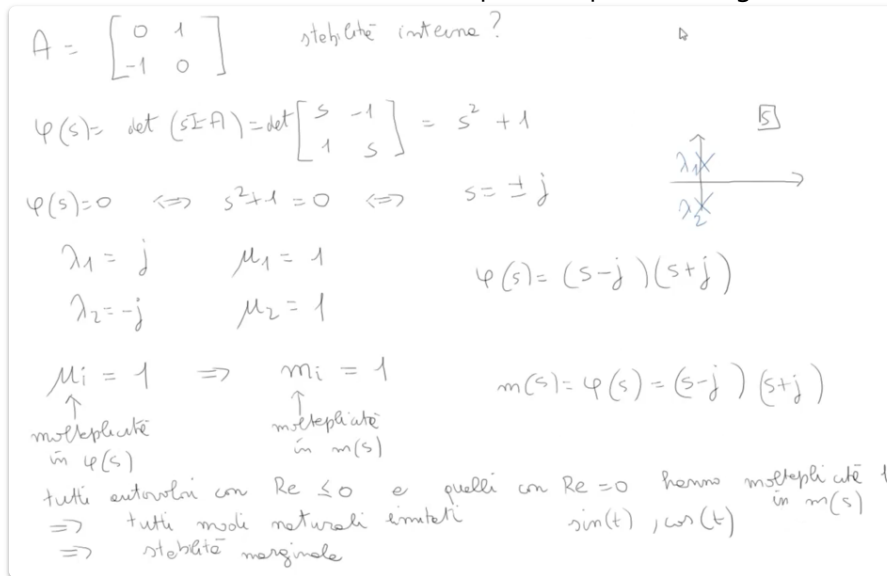 A = [ 0 1 ; -1 0 ] stabilità interna?
φ(s)= det (sI-A)=det [ s -1 ; 1 s ] = s² + 1
s
λ1
λ2
φ(s)=0 <=> s²+1 =0 <=> s= ± j
λ1 = j μ1 = 1
φ(s)= (s-j)(s+j)
λ2=-j μ2 = 1
μi = 1 => mi = 1
m(s)= φ(s) = (s-j) (s+j)
↑ ↑
molteplicità molteplicità
in φ(s) in m(s)
tutti autovalori con Re ≤0 e quelli con Re =0 hanno molteplicità 1
in m(s)
=> tutti modi naturali limitati sin(t), cos(t)
=> stabilità marginale